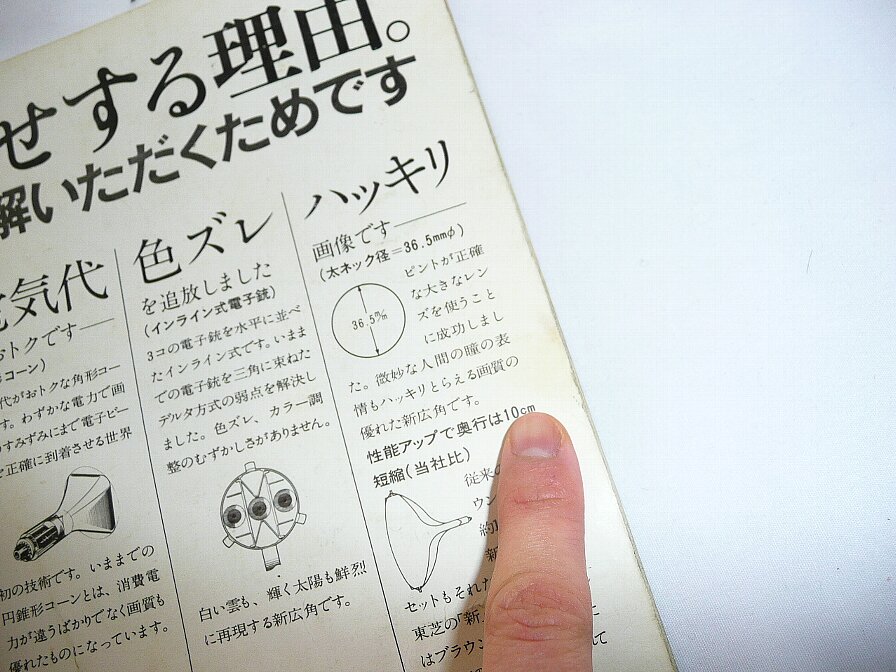 せする理由。
解いただくためです
ハッキリ
画像です
(太ネック径=36.5mmφ)
36.5m/m
ピントが正確
な大きなレン
ズを使うこと
に成功しまし
た。微妙な人間の瞳の表
情もハッキリとらえる画質の
優れた新広角です。
性能アップで奥行は10cm
短縮(当社比)
従来の
ウン
約1
新
セットもそれた
東芝の「新
はブラウン
て
色ズレ
を追放しました
(インライン式電子銃)
3コの電子銃を水平に並べ
たインライン式です。いまま
での電子銃を三角に束ねた
デルタ方式の弱点を解決し
ました。色ズレ、カラー調
整のむずかしさがありません。
白い雲も、輝く太陽も鮮烈
に再現する新広角です。
電気代
おトクです
コーン)
代がおトクな角形コー
す。わずかな電力で画
のすみずみにまで電子ビー
を正確に到着させる世界
初の技術です。いままでの
円錐形コーンとは、消費電
力が違うばかりでなく画質も
優れたものになっています。